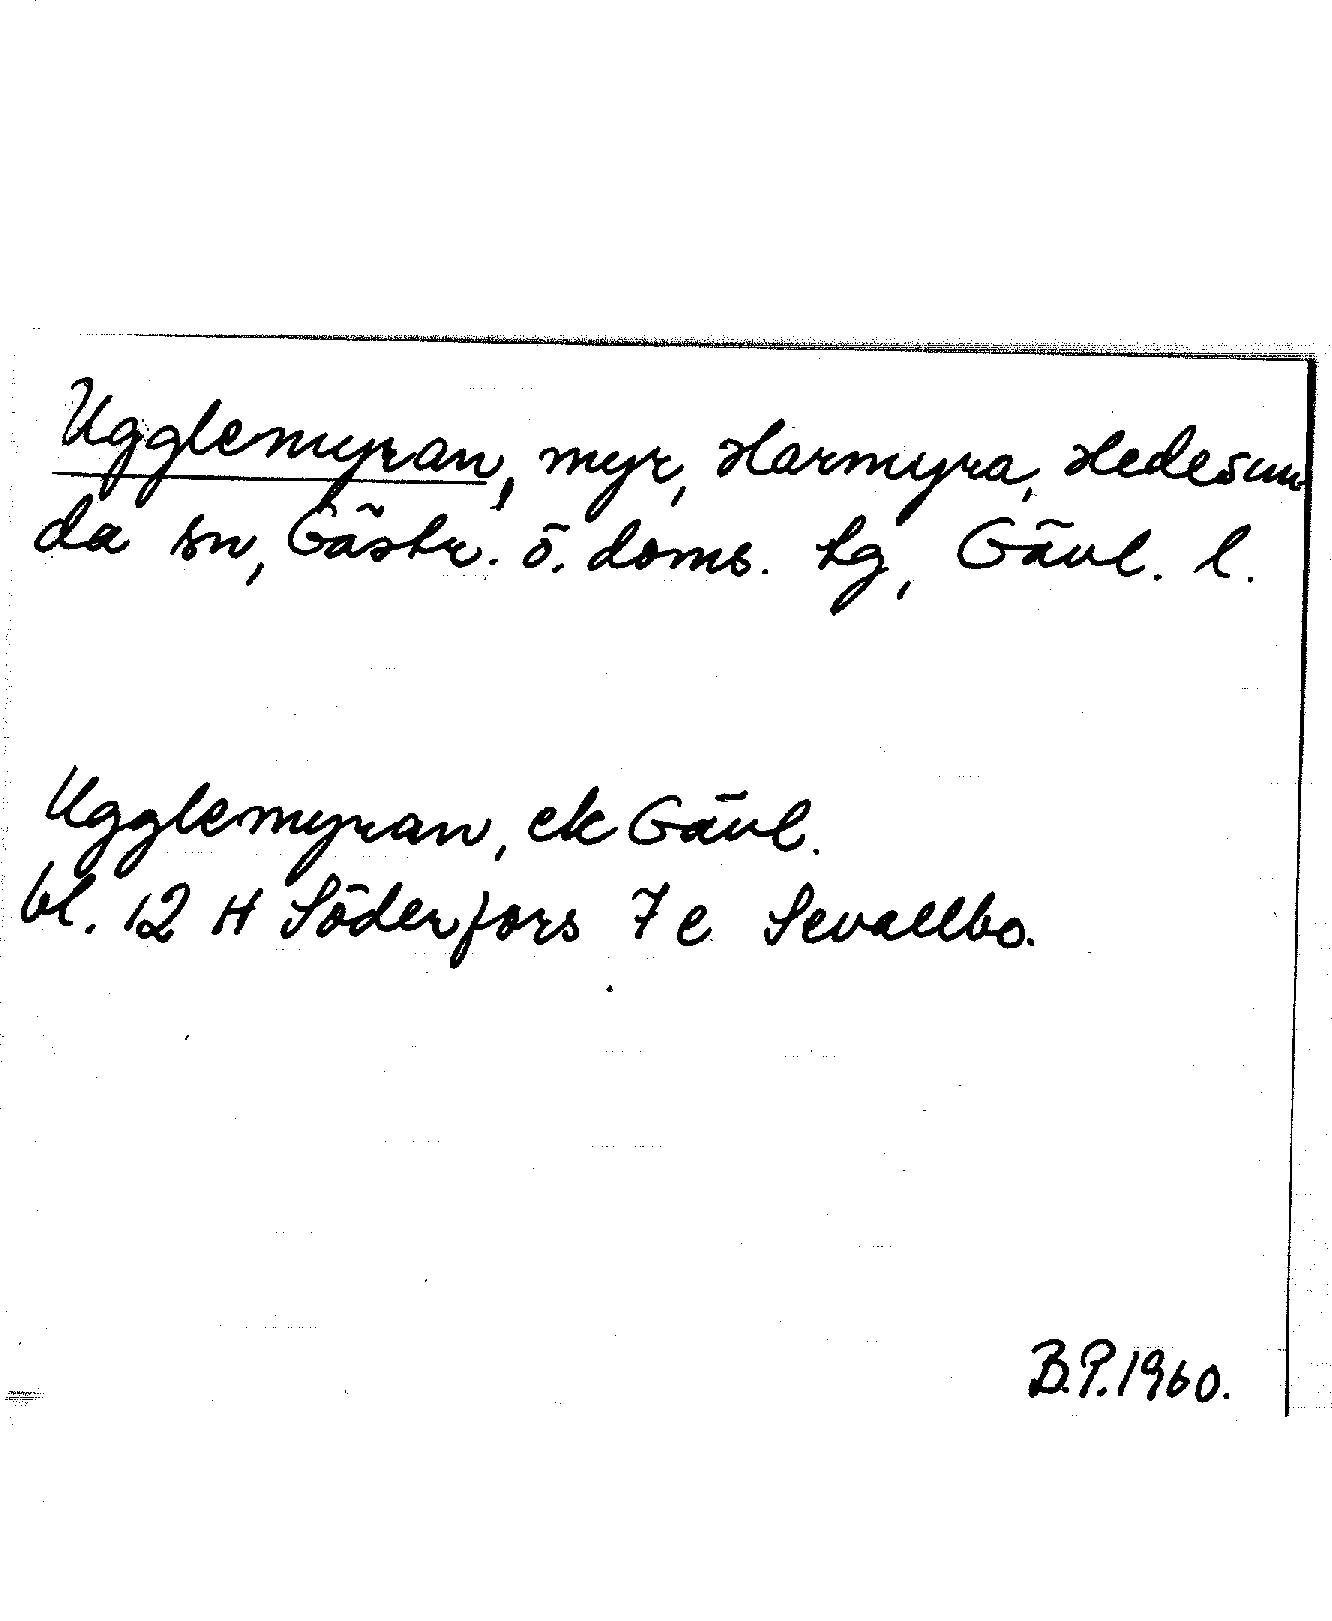 Ugglemyran, myr, Harmyra, Hedesun
da sn, Gästr. ö. doms. hg, Gävl. l.
Ugglemyran, ek Gävl.
bl. 12 H Söderfors 7 e Sevallbo.
B.P. 1960.